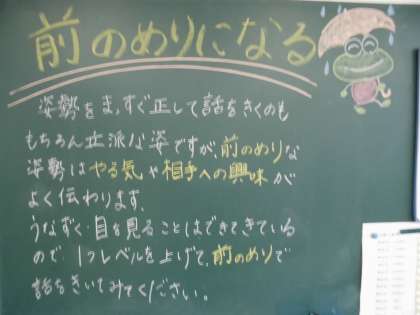 前のめりになる
姿勢をまっすぐ正して話をきくのも
もちろん立派な姿ですが、前のめりな
姿勢はやる気や相手への興味が
よく伝わります。
うなずく・目を見ることはできてきている
ので、1つレベルを上げて、前のめりで
話をきいてみてください。